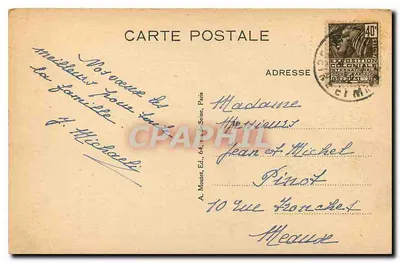 CARTE POSTALE
ADRESSE
40c
EXPOSITION
Nos vœux les
meilleurs pour toute
la famille
J. Michaely
A. Moutet, Ed., 64, Seine, Paris
CPARAMA
Madame
Messieurs
Jean et Michel
Pinot
10 rue Tronchet
Meaux